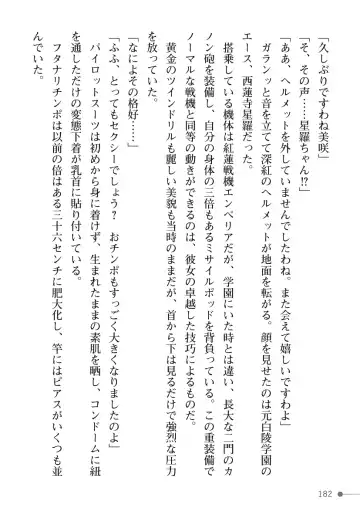 「久しぶりですわね美咲」
「そ、その声……星羅ちゃん!?」
「ああ、ヘルメットを外していませんでしたわね。また会えて嬉しいですわよ」
ガランッと音を立てて深紅のヘルメットが地面を転がる。顔を見せたのは元白陵学園の
エース、西蓮寺星羅だった。
搭乗している機体は紅蓮戦機エンベリアだが、学園にいた時とは違い、長大な二門のカ
ノン砲を装備し、自分の身体の三倍もあるミサイルポッドを背負っている。この重装備で
ノーマルな戦機と同等の動きができるのは、彼女の卓越した技巧によるものだ。
黄金のツインドリルも麗しい美貌も当時のままだが、首から下は見るだけで強烈な圧力
を放っていた。
「なによその格好……」
「ふふ、とってもセクシーでしょう? おチンポもすっごく大きくなりましたのよ」
パイロットスーツは初めから身に着けず、生まれたままの素肌を晒し、コンドームに紐
を通しただけの変態下着が乳首に貼り付いている。
フタナリチンポは以前の倍はある三十六センチに肥大化し、竿にはピアスがいくつも並
んでいた。
182